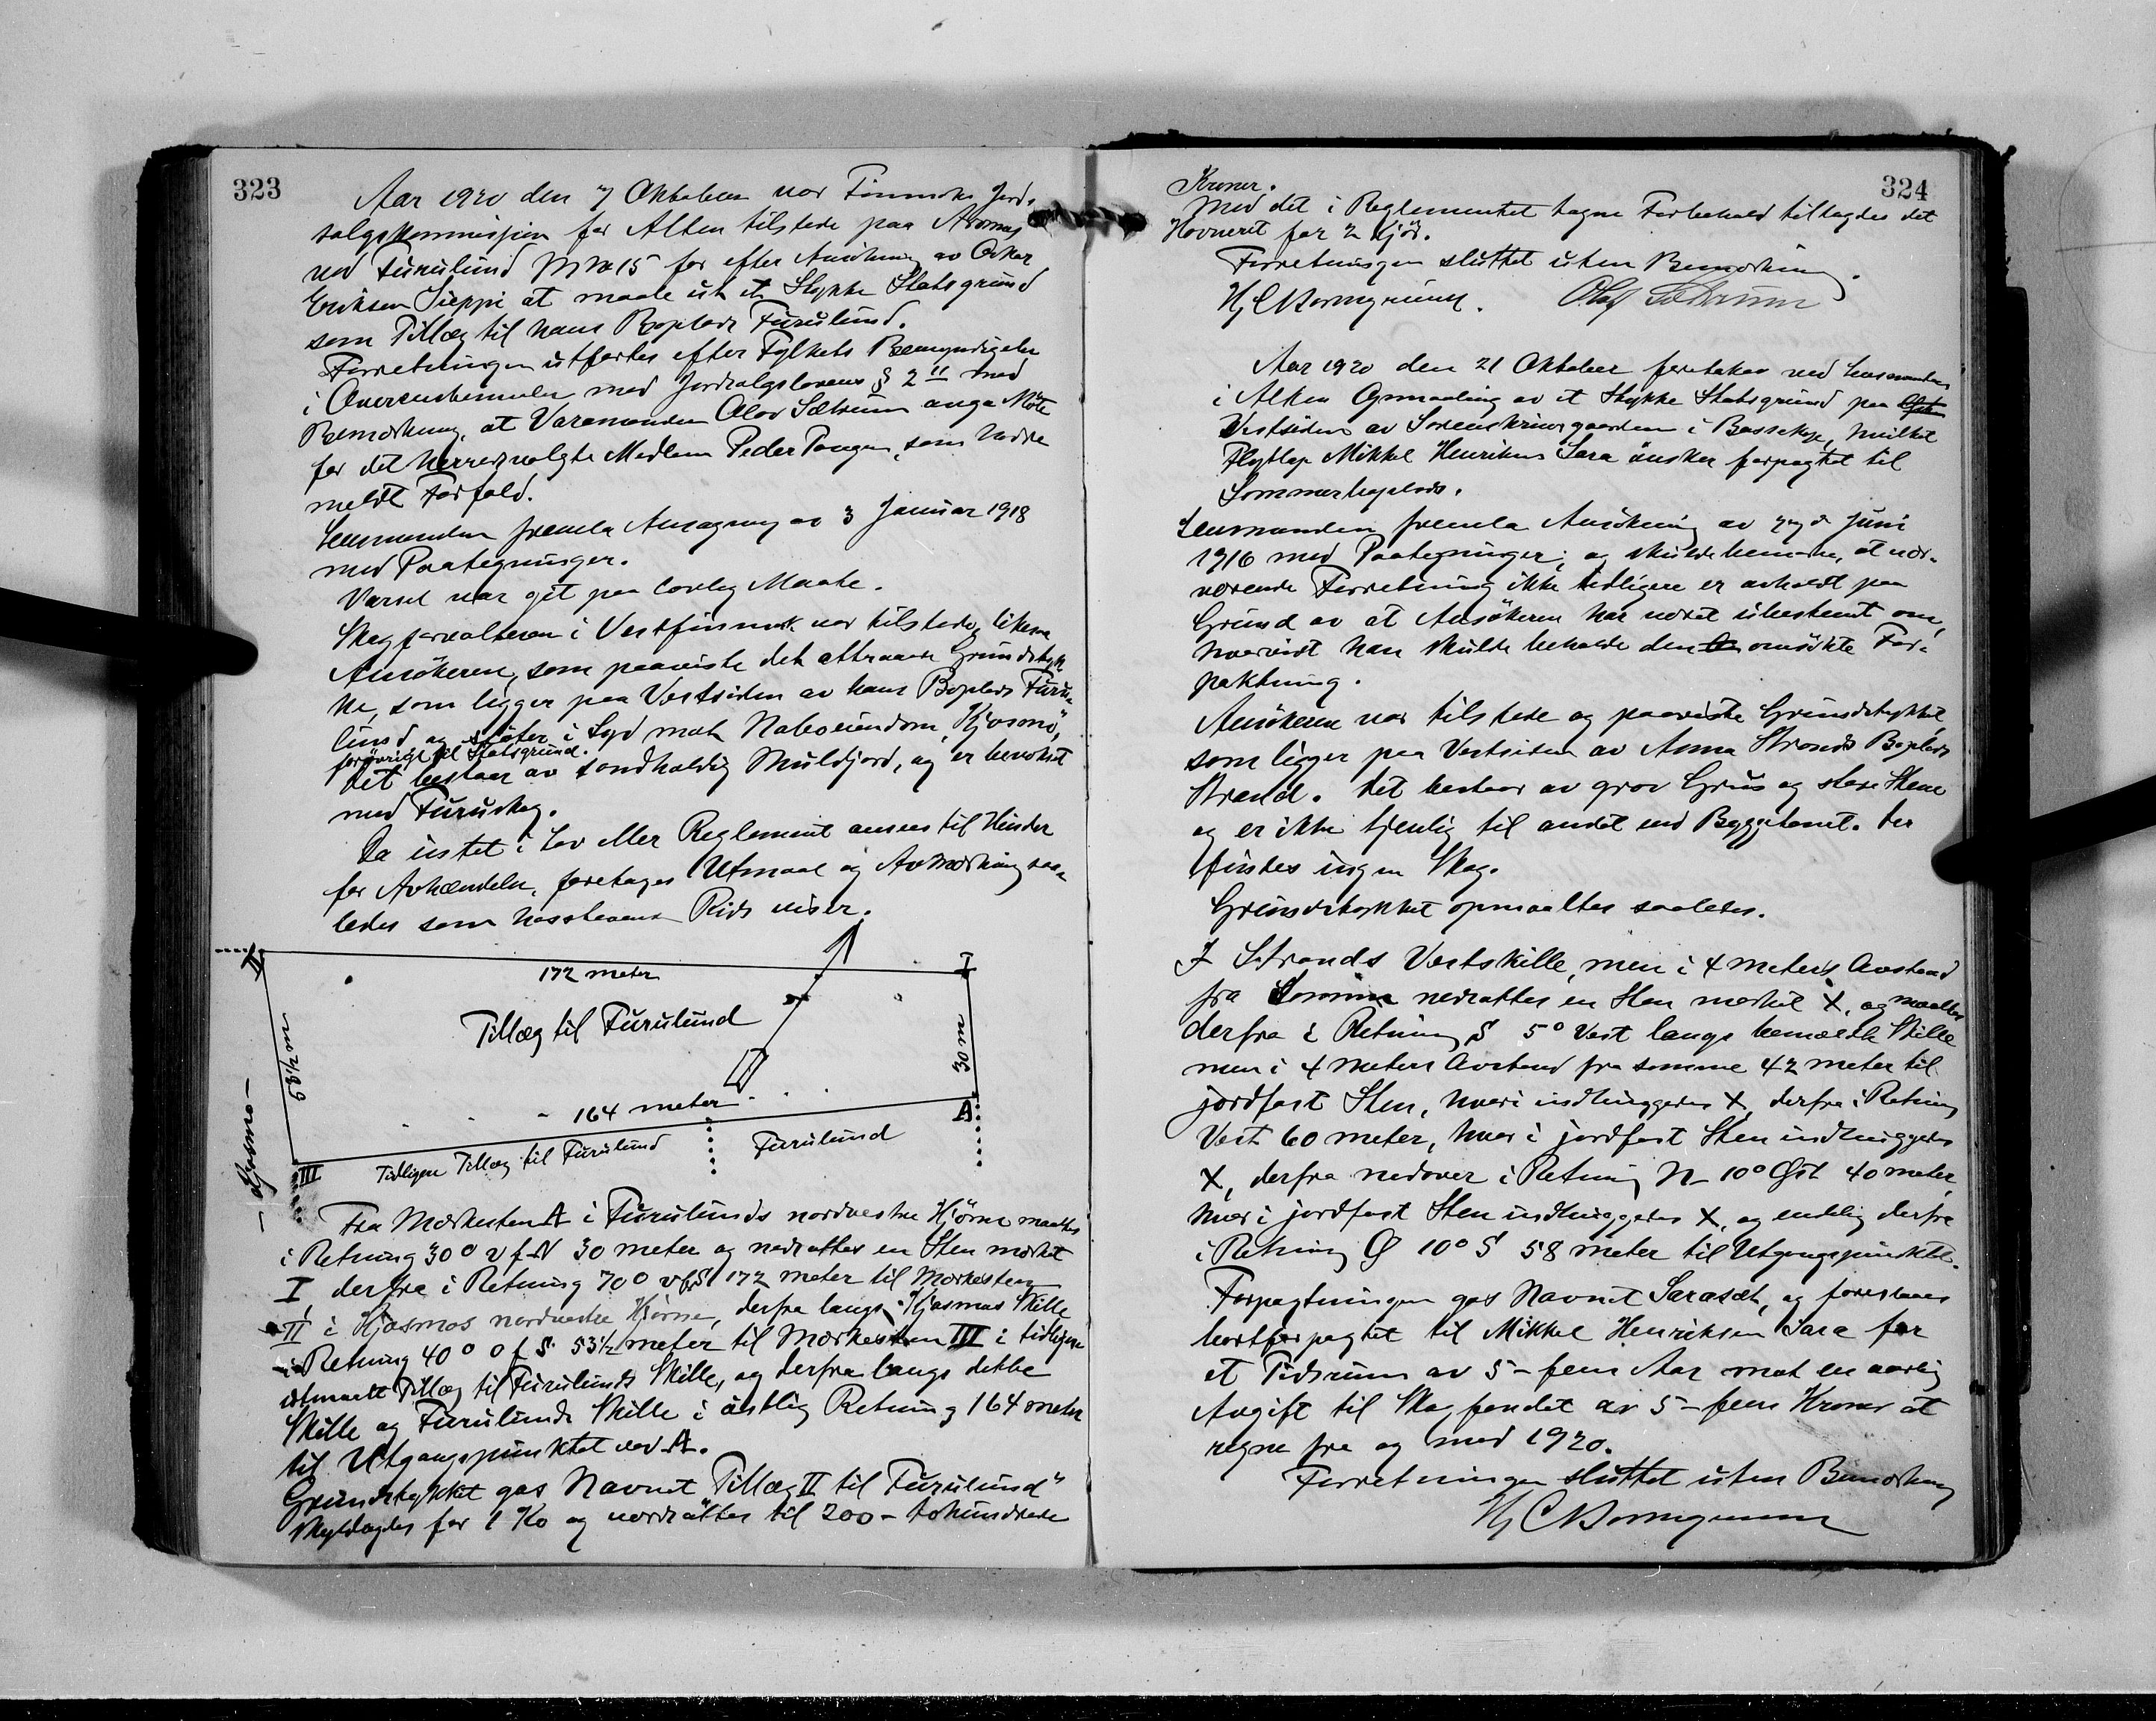 323
Aar 1920 den 7 Oktober var Finmarkens Jord-
salgskommission for Alten tilstede paa Aronnes
ved Furulund M No 15 for efter Ansökning av Oskar
Eriksen Sieppi at maale ut et Stykke Statsgrund
som Tillæg til hans Boplads Furulund.
Forretningen utfortes efter Fylkets Bemyndigelse
i Overensstemmelse med Jordsalgslovens § 2 med
Bemerkning, at Varamanden Olav Sætrum avga Möte
for det herredsvalgte Medlem Peder Tangen, som hadde
meldt Forfald.
Lensmanden fremla Ansøgning av 3 Januar 1918
med Paategninger.
Varsel var git paa lovlig Maate.
Skogforvalteren i Vestfinmark var tilstede, likesaa
Ansökeren, som paaviste det attraaede Grundstyk
ke, som ligger paa Vestsiden av hans Boplads Furu-
lund og stöter i Syd mot Naboeiendom, Kjosmo,
forövrigt til Statsgrund.
Det bestaar av sandholdig Muldjord, og er bevokset
med Furuskog.
Da intet i Lov eller Reglement ansees til Hinder
for Avhændelse, foretages Utmaal og Avmerkning saa-
ledes som hosstaaende Rids viser.
II
172 meter
I
Tillæg til Furulund
53 1/2 m
30 m
164 meter
A
- Kjosmo -
III
Tidligere Tillæg til Furulund
Furulund
Fra Merkesten A i Furulunds nordvestre Hjörne maaltes
i Retning 30° v f N 30 meter og nedsattes en Sten merket
I derfra i Retning 70° v f S 172 meter til Merkesten
II i Kjosmos nordvestre Hjörne, derfra langs Kjosmos Skille
i Retning 40° o f S. 53 1/2 meter til Merkesten III i tidligere
utmaalt Tillæg til Furulunds Skille, og derfra langs dette
Skille og Furulunds Skille i östlig Retning 164 meter
til Utgangspunktet ved A.
Grundstykket gas Navnet Tillæg II til Furulund"
Skyldsagdes for 1 Ko og verdsattes til 200 - tohundrede
324
Kroner.
Med det i Reglementet tagne Forbehold tillagdes det
Havneret for 2 Kjör.
Forretningen sluttet uten Bemerkning.
Olaf Sætrum
Aar 1920 den 21 Oktober foretokes ved Lensmanden
i Alten Opmaaling av et Stykke Statsgrund paa
Vestsiden av Sorenskrivergaarden i Bossekop, hvilket
Flytlap Mikkel Henriksen Sara önsker forpagtet til
Sommerboplads.
Lensmanden fremla Ansökning av Juni
1916 med Paategninger, og skulde bemerke, at nær-
værende Forretning ikke tidligere er avholdt paa
Grund av at Ansökeren har været ubestemt om,
hvorvidt han skulde beholde den omsökte For-
paktning.
Ansökeren var tilstede og paaviste Grundstykket,
som ligger paa Vestsiden av Anna Strands Boplads
Strand. Det bestaar av grov Grus og store Stene
og er ikke tjenlig til andet end Byggetomt. Der
findes ingen Skog.
Grundstykket opmaaltes saaledes.
I Strands Vestskille, men i 4 meters Avstand
fra samme nedsattes en Sten merket X, og maaltes
derfra i Retning S 5° Vest langs bemeldte Skille
men i 4 meters Avstand fra samme 42 meter til
jordfast Sten, hvori indhuggedes X, derfra i Retning
Vest 60 meter, hvor i jordfast Sten indhuggedes
X, derfra nedover i Retning N 10° Öst 40 meter,
hvor i jordfast Sten indhuggedes X, og endelig derfra
i Retning Ö 10° S 58 meter til Utgangspunktet.
Forpagtningen gas Navnet Sarasæt, og foreslaaes
bortforpagtet til Mikkel Henriksen Sara for
et Tidsrum av 5 - fem Aar mot en aarlig
Avgift til Skogfondet av 5 - fem Kroner at
regne fra og med 1920.
Forretningen sluttet uten Bemerkning